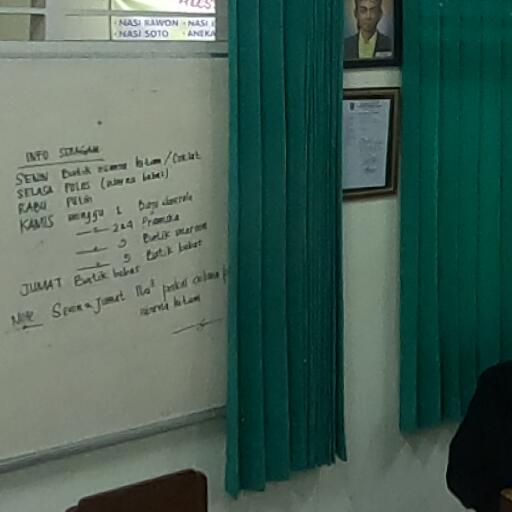 · NASI RAWON · NASI
· NASI SOTO · ANEKA
INFO SERAGAM
SENIN Batik warna hitam / Coklat
SELASA POLOS (warna bebas)
RABU Putih
KAMIS minggu 1 Baju daerah
2&4 Pramuka
3 Batik maroon
5 Batik bebas
JUMAT Batik bebas
Note Senin & Jumat pakai
warna hitam